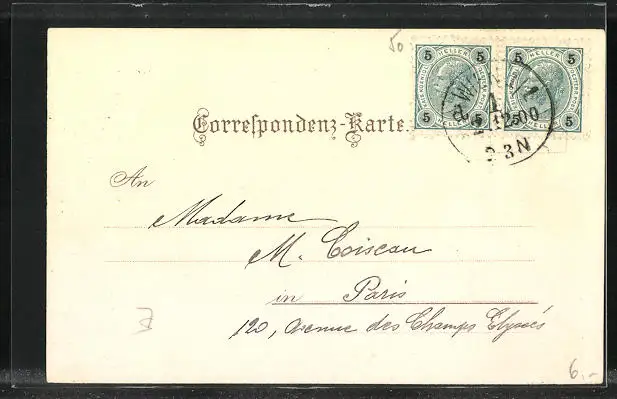 50
5 HELLER 5 5 HELLER 5
5 HELLER 5 5 HELLER
WIEN 1
12 00
3N
Correspondenz-Karte.
An
Madame
M. Coiseau
in Paris
120, Avenue des Champs Elysées
6.-